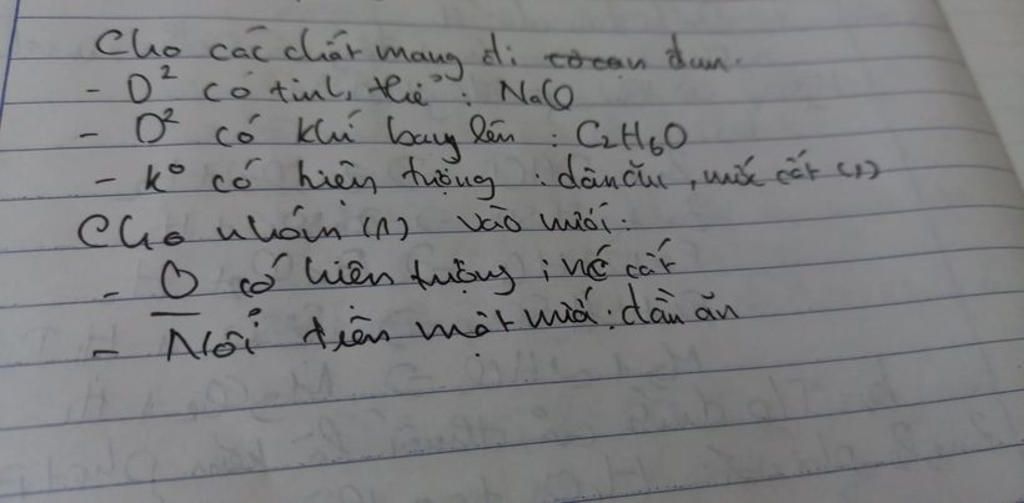 Cho các chất mang đi cô cạn dun.
- D² có tinh thể : NaCl
- D² có khí bay lên : C₂H₆O
- K° có hiện tượng : dầu ăn, nước cất (1)
Cho nhóm (1) vào muối.
- O có hiện tượng ; nước cất
- Nổi trên mặt muối : dầu ăn